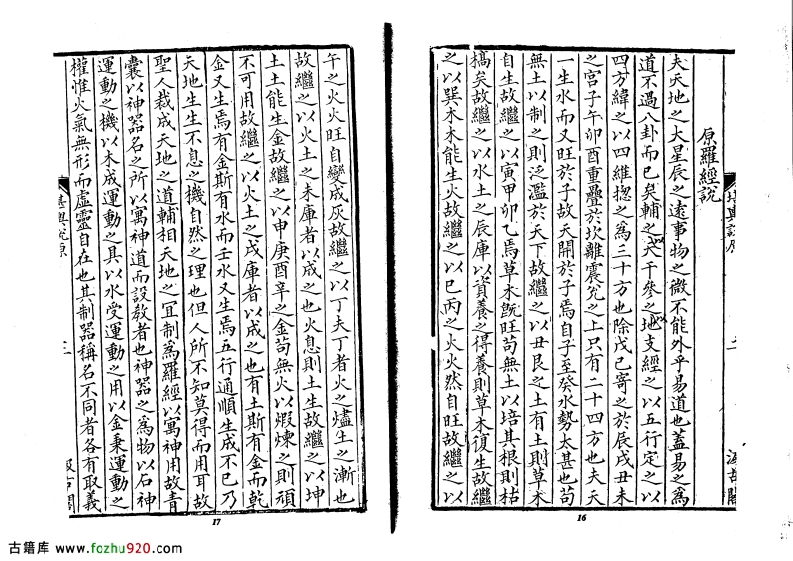 原羅經說
夫天地之大星辰之遠事物之微不能外乎易道也蓋易之為
道不過八卦而已矣輔之以天干參之以地支經之以五行定之以
四方緯之以四維揔之為三十方也除戊己寄之於辰戌丑未
之宮子午卯酉重疊於坎離震兊之上只有二十四方也夫天
一生水而又旺於子故天開於子焉自子至癸水勢太甚也苟
無土以制之則泛濫於天下故繼之以丑艮之土有土則草木
自生故繼之以寅甲卯乙焉草木旣旺苟無土以培其根則枯
槁矣故繼之以水土之辰庫以資養之得養則草木復生故繼
之以巽木木能生火故繼之以巳丙之火火然自旺故繼之以
午之火火旺自變成灰故繼之以丁夫丁者火之燼土之漸也
故繼之以火土之未庫者以成之也火息則土生故繼之以坤
土土能生金故繼之以申庚酉辛之金苟無火以煆煉之則頑
不可用故繼之以火土之戌庫者以成之也有土斯有金而乾
金又生焉有金斯有水而壬水又生焉五行通順生成不已乃
天地生生不息之機自然之理也但人所不知莫得而用耳故
聖人裁成天地之道輔相天地之宜制為羅經以寓神用故青
囊以神器名之所以寓神道而設教者也神器之為物以石神
運動之機以木成運動之具以水受運動之用以金秉運動之
權惟火氣無形而虛靈自在也其制器稱名不同者各有取義
堪輿說原
二
汲古閣
堪輿說原
三
汲古閣
16
17
古籍库 www.fozhu920.com